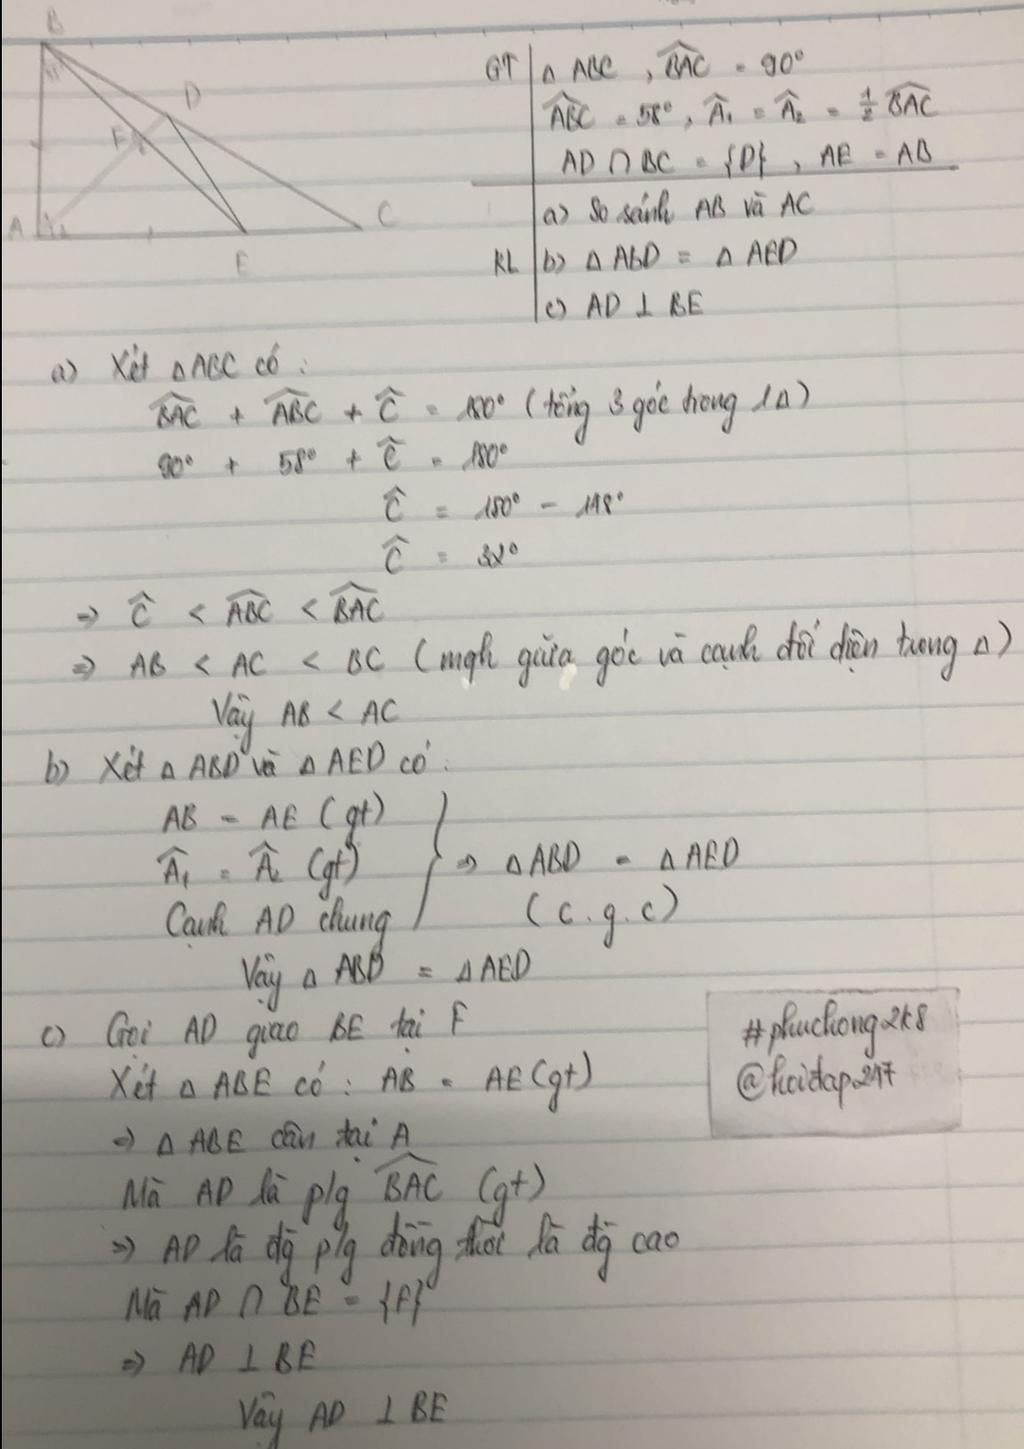 B
D
F
A
1
2
E
C
GT
Δ ABC , BAC = 90°
ABC = 58° , A₁ = A₂ = 1/2 BAC
AD ∩ BC = {D} , AE = AB
KL
a) So sánh AB và AC
b) Δ ABD = Δ AED
c) AD ⊥ BE
a) Xét Δ ABC có :
BAC + ABC + Ĉ = 180° (tổng 3 góc trong 1Δ)
90° + 58° + Ĉ = 180°
Ĉ = 180° - 148°
Ĉ = 32°
=> Ĉ < ABC < BAC
=> AB < AC < BC (mqh giữa góc và cạnh đối diện trong Δ)
Vậy AB < AC
b) Xét Δ ABD và Δ AED có :
AB = AE (gt)
Â₁ = Â₂ (gt)
Cạnh AD chung
=> Δ ABD = Δ AED
(c.g.c)
Vậy Δ ABD = Δ AED
c) Gọi AD giao BE tại F
Xét Δ ABE có : AB = AE (gt)
=> Δ ABE cân tại A
Mà AD là p/g BAC (gt)
=> AD là đg p/g đồng thời là đg cao
Mà AD ∩ BE = {F}
=> AD ⊥ BE
Vậy AD ⊥ BE
#phuchong2k8
@hoidap247